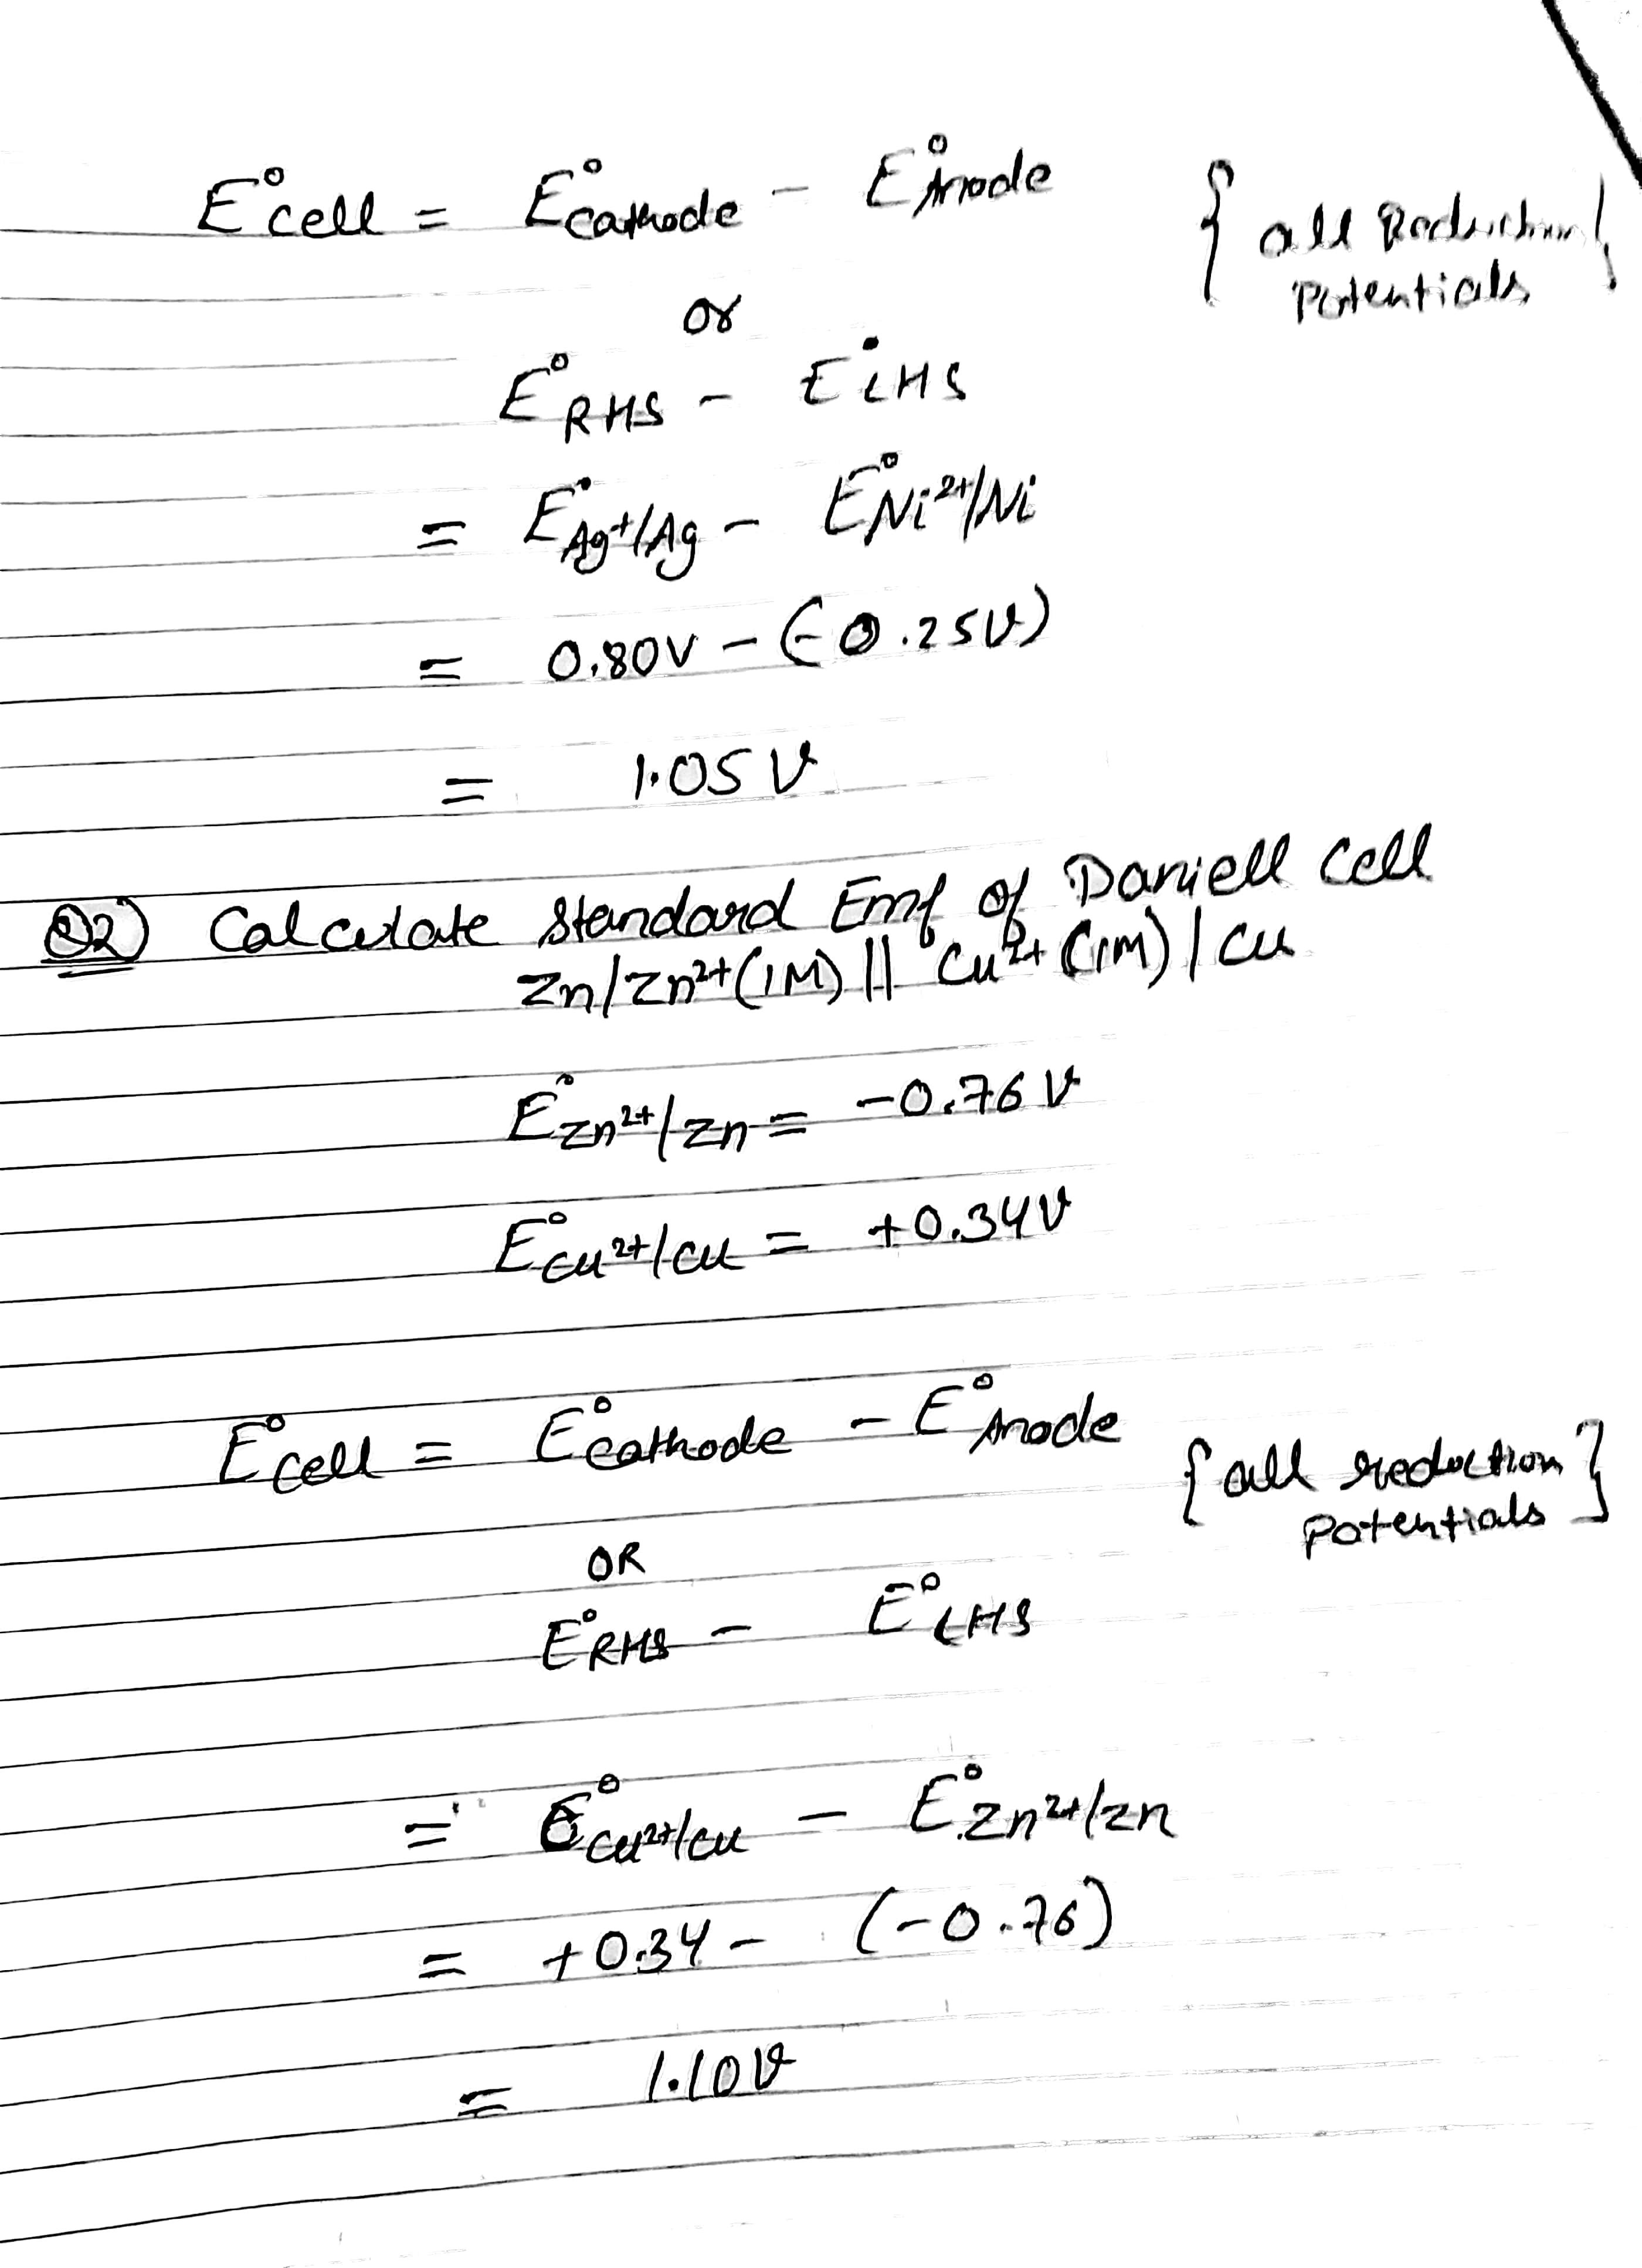 E°cell = E°cathode - E°Anode { all Reduction
Potentials }
or
E°RHS - E°LHS
= E°Ag+/Ag - E°Ni2+/Ni
= 0.80V - (-0.25V)
= 1.05 V
Q2) Calculate Standard Emf of Daniell Cell
Zn/Zn2+(1M) || Cu2+(1M) | Cu
E°Zn2+/Zn = -0.76 V
E°Cu2+/Cu = +0.34V
E°cell = E°cathode - E°Anode { all reduction
Potentials }
OR
E°RHS - E°LHS
= E°Cu2+/Cu - E°Zn2+/Zn
= +0.34 - (-0.76)
= 1.10V